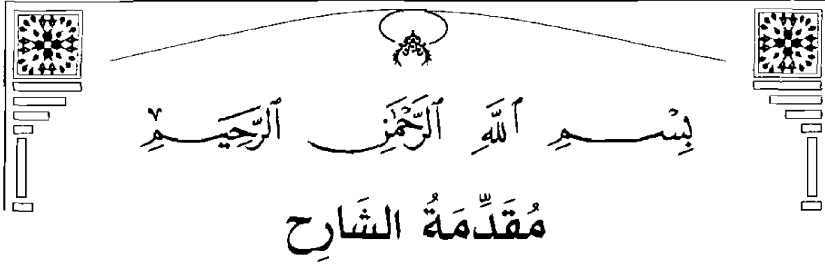 بِسْمِ ٱللَّهِ ٱلرَّحْمَٰنِ ٱلرَّحِيمِ
مُقَدِّمَةُ الشَارِح